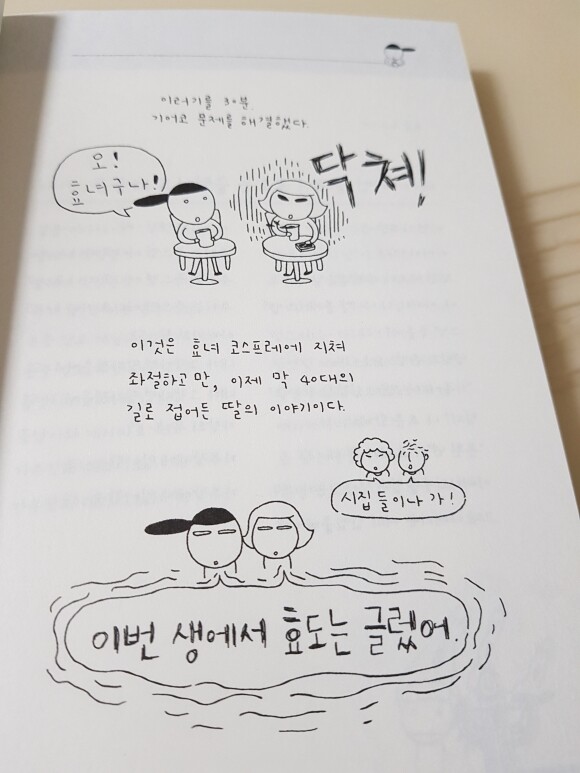 이러기를 30분.
기어코 문제를 해결했다.
오!
효녀구나!
닥쳐!
이것은 효녀 코스프레에 지쳐
좌절하고 만, 이제 막 40대의
길로 접어든 딸의 이야기이다.
시집들이나 가!
이번 생에서 효도는 글렀어.